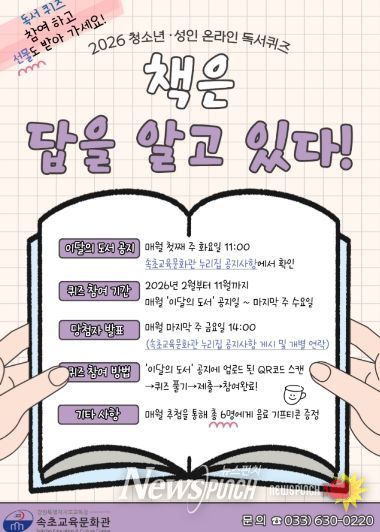 독서 퀴즈
참여 하고
선물도 받아 가세요!
2026 청소년·성인 온라인 독서퀴즈
책은
답을 알고 있다!
이달의 도서 공지 매월 첫째 주 화요일 11:00
속초교육문화관 누리집 공지사항에서 확인
퀴즈 참여 기간 2026년 2월부터 11월까지
매월 '이달의 도서' 공지일 ~ 마지막 주 수요일
당첨자 발표 매월 마지막 주 금요일 14:00
(속초교육문화관 누리집 공지사항 게시 및 개별 연락)
퀴즈 참여 방법 '이달의 도서' 공지에 업로드 된 QR코드 스캔
→퀴즈 풀기→제출→참여완료!
기타 사항 매월 추첨을 통해 총 6명에게 음료 기프티콘 증정
뉴스펀치
NEWSPUNCH
NEWSPUNCH
강원특별자치도교육청
속초교육문화관
문의 ☎ 033) 630-0220